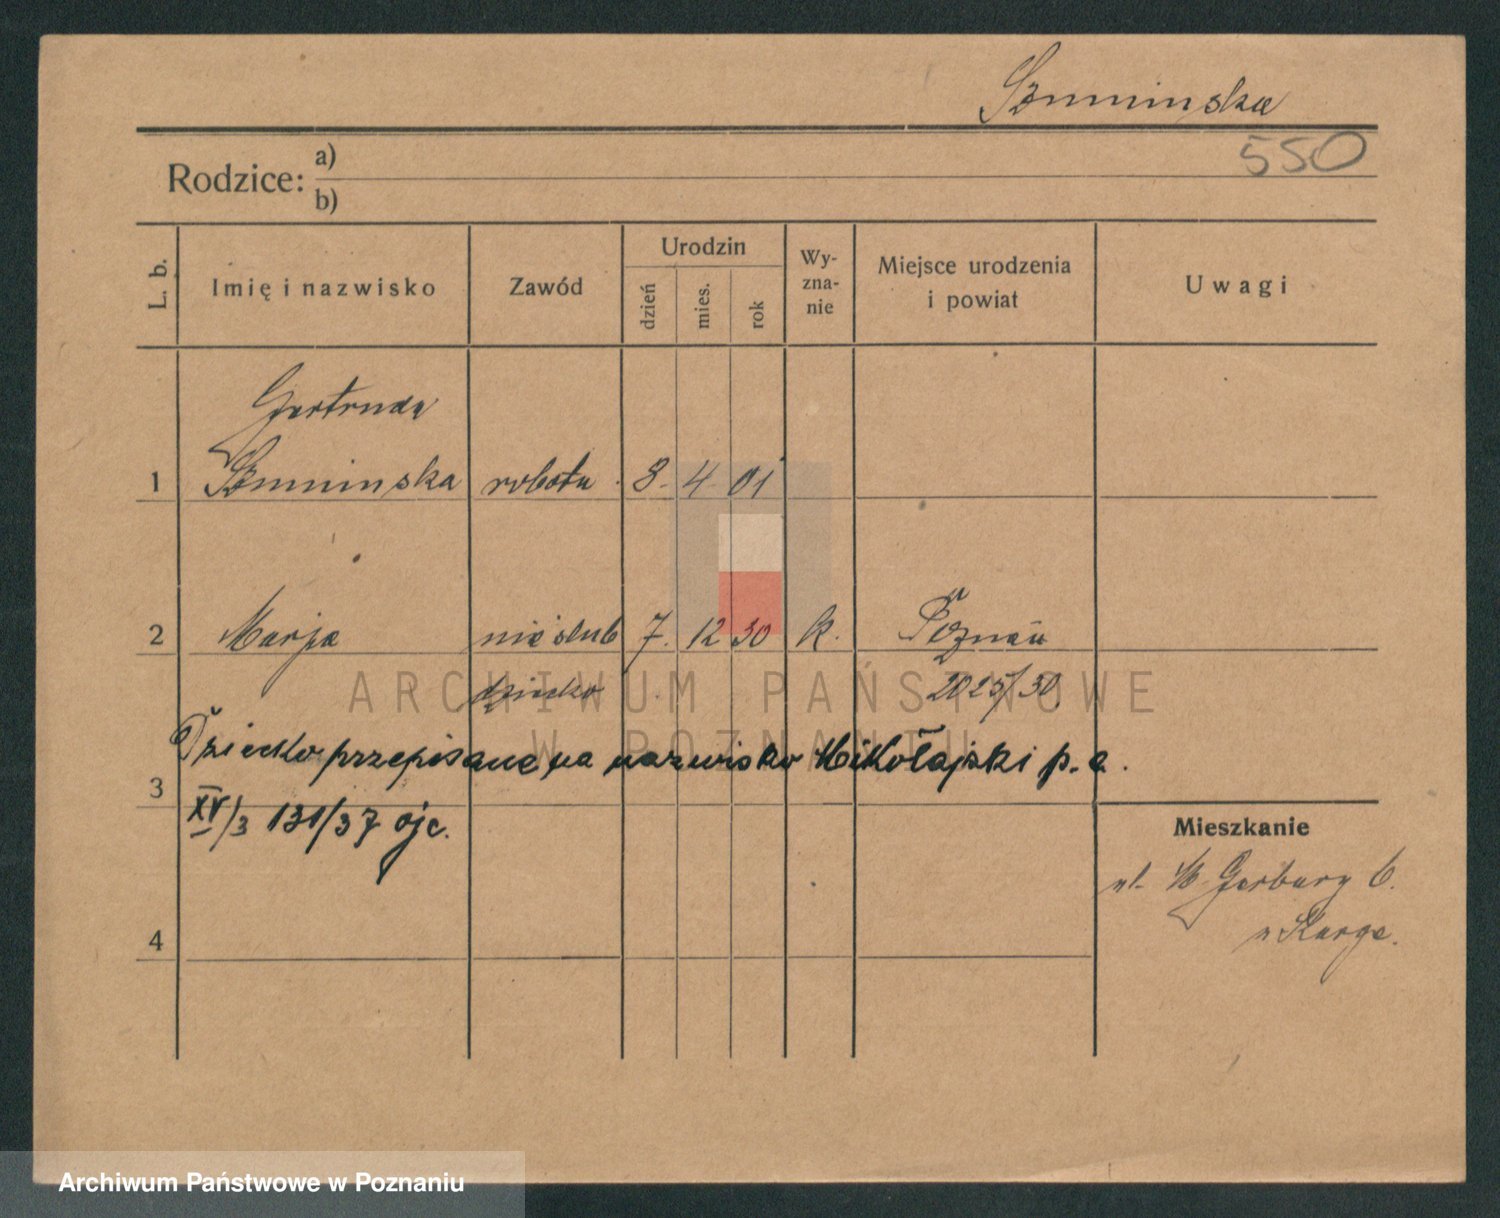 Szmminska
550
Rodzice:
a)
b)
L. b.
Imię i nazwisko
Zawód
Urodzin
dzień
mies.
rok
Wy-
zna-
nie
Miejsce urodzenia
i powiat
Uwagi
Gertruda
1 Szmminska robotn. 8. 4. 01
2 Marja nieślub 7. 12 30 k. Poznań
dziecko 2025/30
Dziecko przepisane na nazwisko Mikołajski p. a.
3
XV/3 131/37 ojc.
Mieszkanie
ul. W Garbary 6.
4
u Karge.
ARCHIWUM PAŃSTWOWE
W POZNANIU
Archiwum Państwowe w Poznaniu